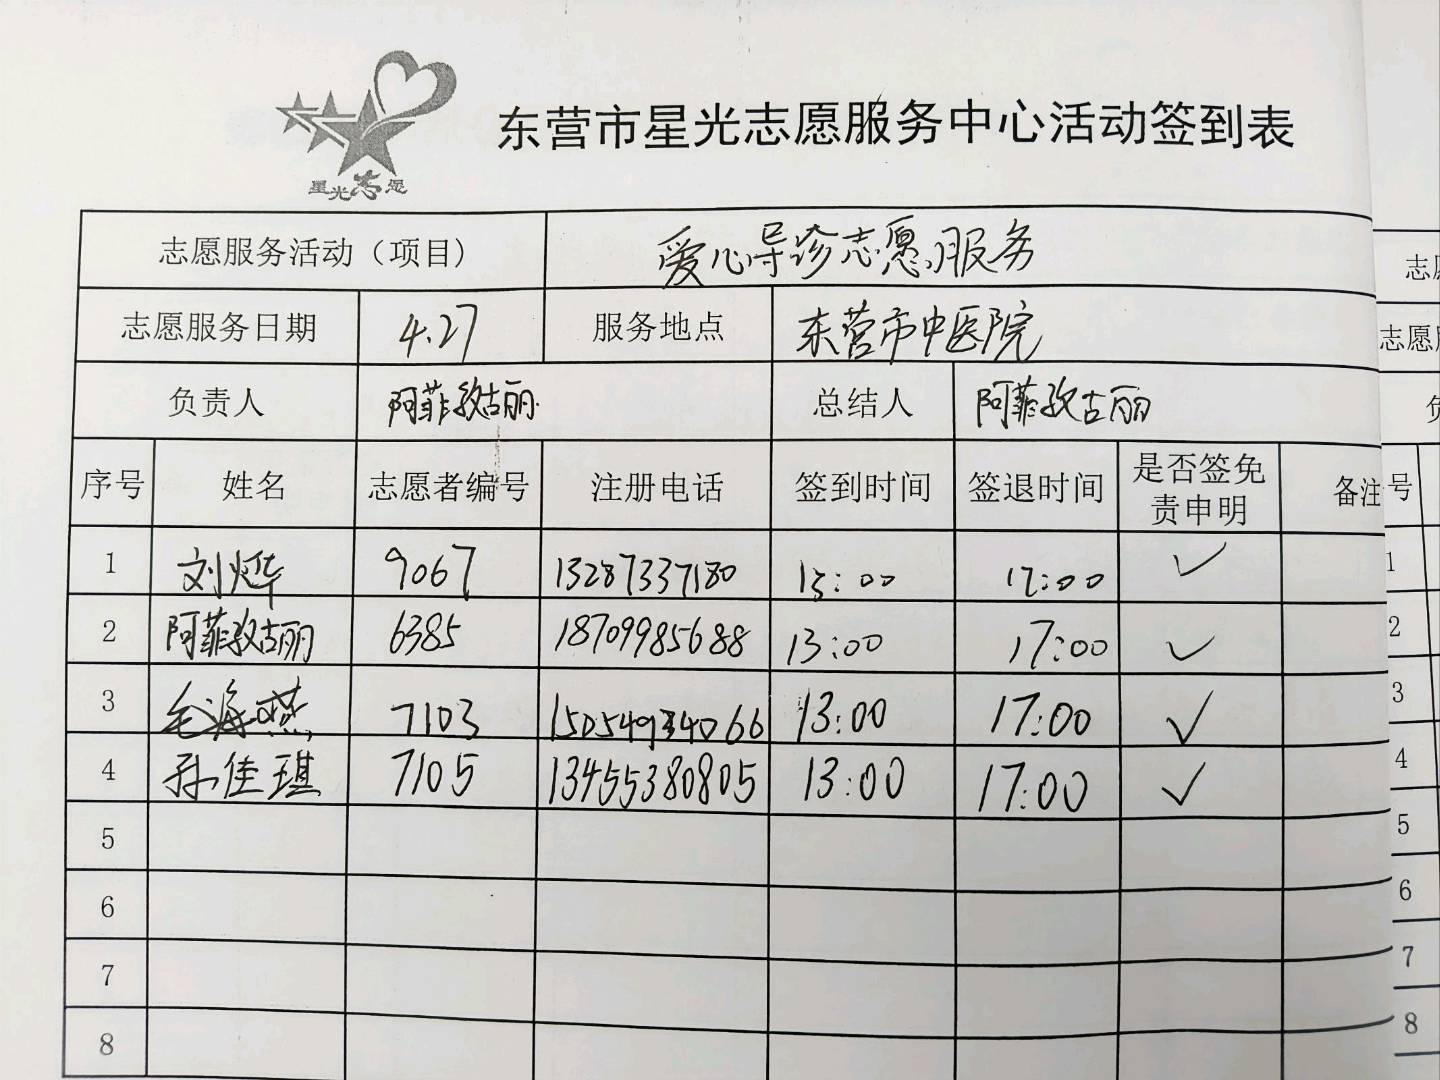 星光志愿
东营市星光志愿服务中心活动签到表
志愿服务活动（项目） 爱心导诊志愿服务
志愿服务日期 4.27 服务地点 东营市中医院
负责人 阿菲孜古丽 总结人 阿菲孜古丽
序号 姓名 志愿者编号 注册电话 签到时间 签退时间 是否签免责申明 备注
1 刘烨 9067 13287337180 13:00 17:00 ✓
2 阿菲孜古丽 6385 18709985688 13:00 17:00 ✓
3 毛海燕 7103 15054934066 13:00 17:00 ✓
4 孙佳琪 7105 13455380805 13:00 17:00 ✓
5
6
7
8
号
1
2
3
4
5
6
7
8